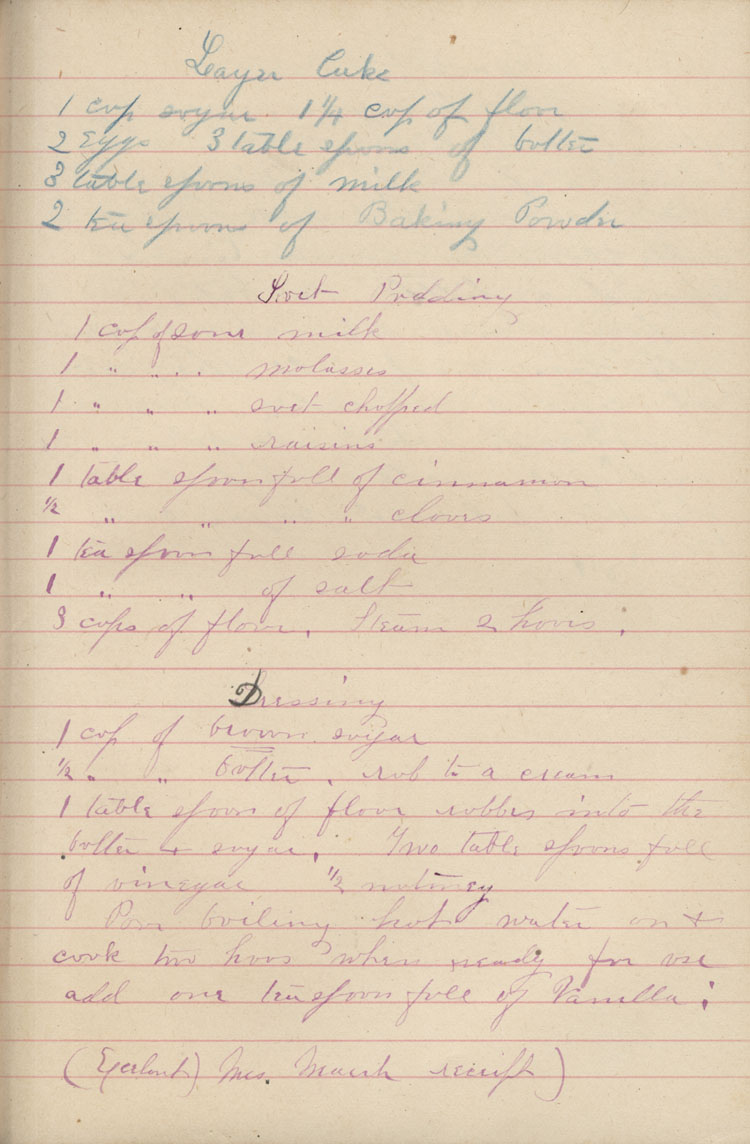 Layer Cake
1 cup sugar 1 1/4 cup of flour
2 Eggs 3 table spoons of butter
3 table spoons of milk
2 tea spoons of Baking Powder
Suet Pudding
1 cup of sour milk
1 " " " molasses
1 " " " suet chopped
1 " " " raisins
1 table spoon full of cinnamon
1/2 " " " " cloves
1 tea spoon full soda
1 " " of salt
3 cups of flour. Steam 2 hours.
Dressing
1 cup of brown sugar
1/2 " " butter. rub to a cream
1 table spoon of flour rubbed into the
butter + sugar. Two table spoons full
of vinegar 1/2 nutmeg
Pour boiling hot water on +
cook two hours when ready for use
add one teaspoon full of Vanilla.
(Excelent) Mrs. Marsh receipt)